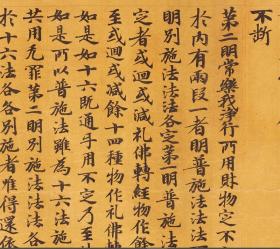 不斷
第二明常樂我淨行所用財物定不
於内有兩段一者明普施法
明別施法法各定第二明普施法
定者或迴或減礼佛轉經物作餘
至或迴或減餘十四種物作礼佛
如是如十六既通乎用不定乃至
如是所以普施法雖為十六施
共用无罪第二明別施法法法各
於十六法各各別施者唯得還依